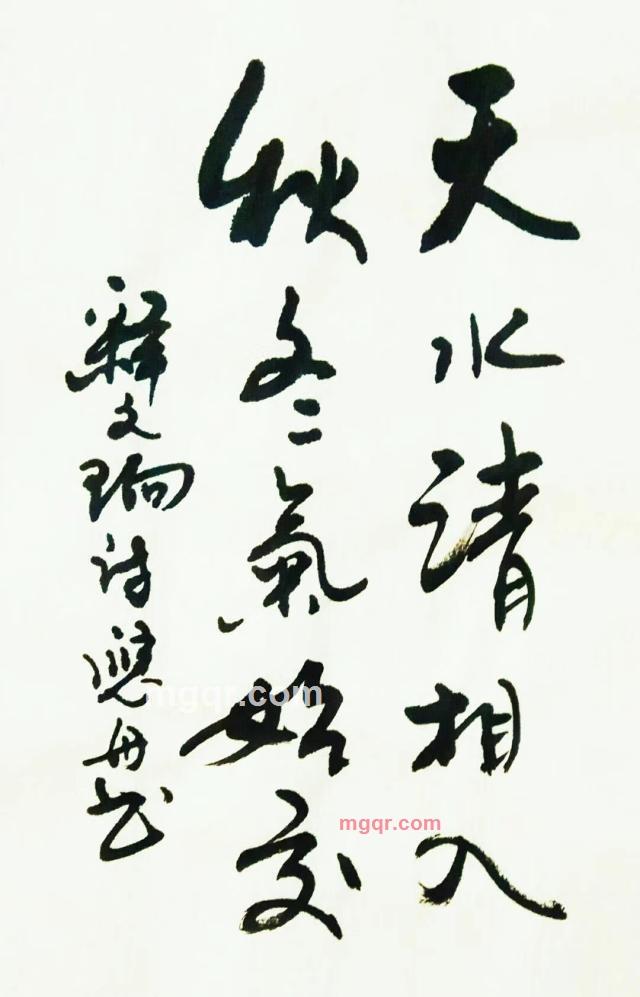 天水清相入
秋冬氣始交
釋文珦诗應舟书
mgqr.com
mgqr.com